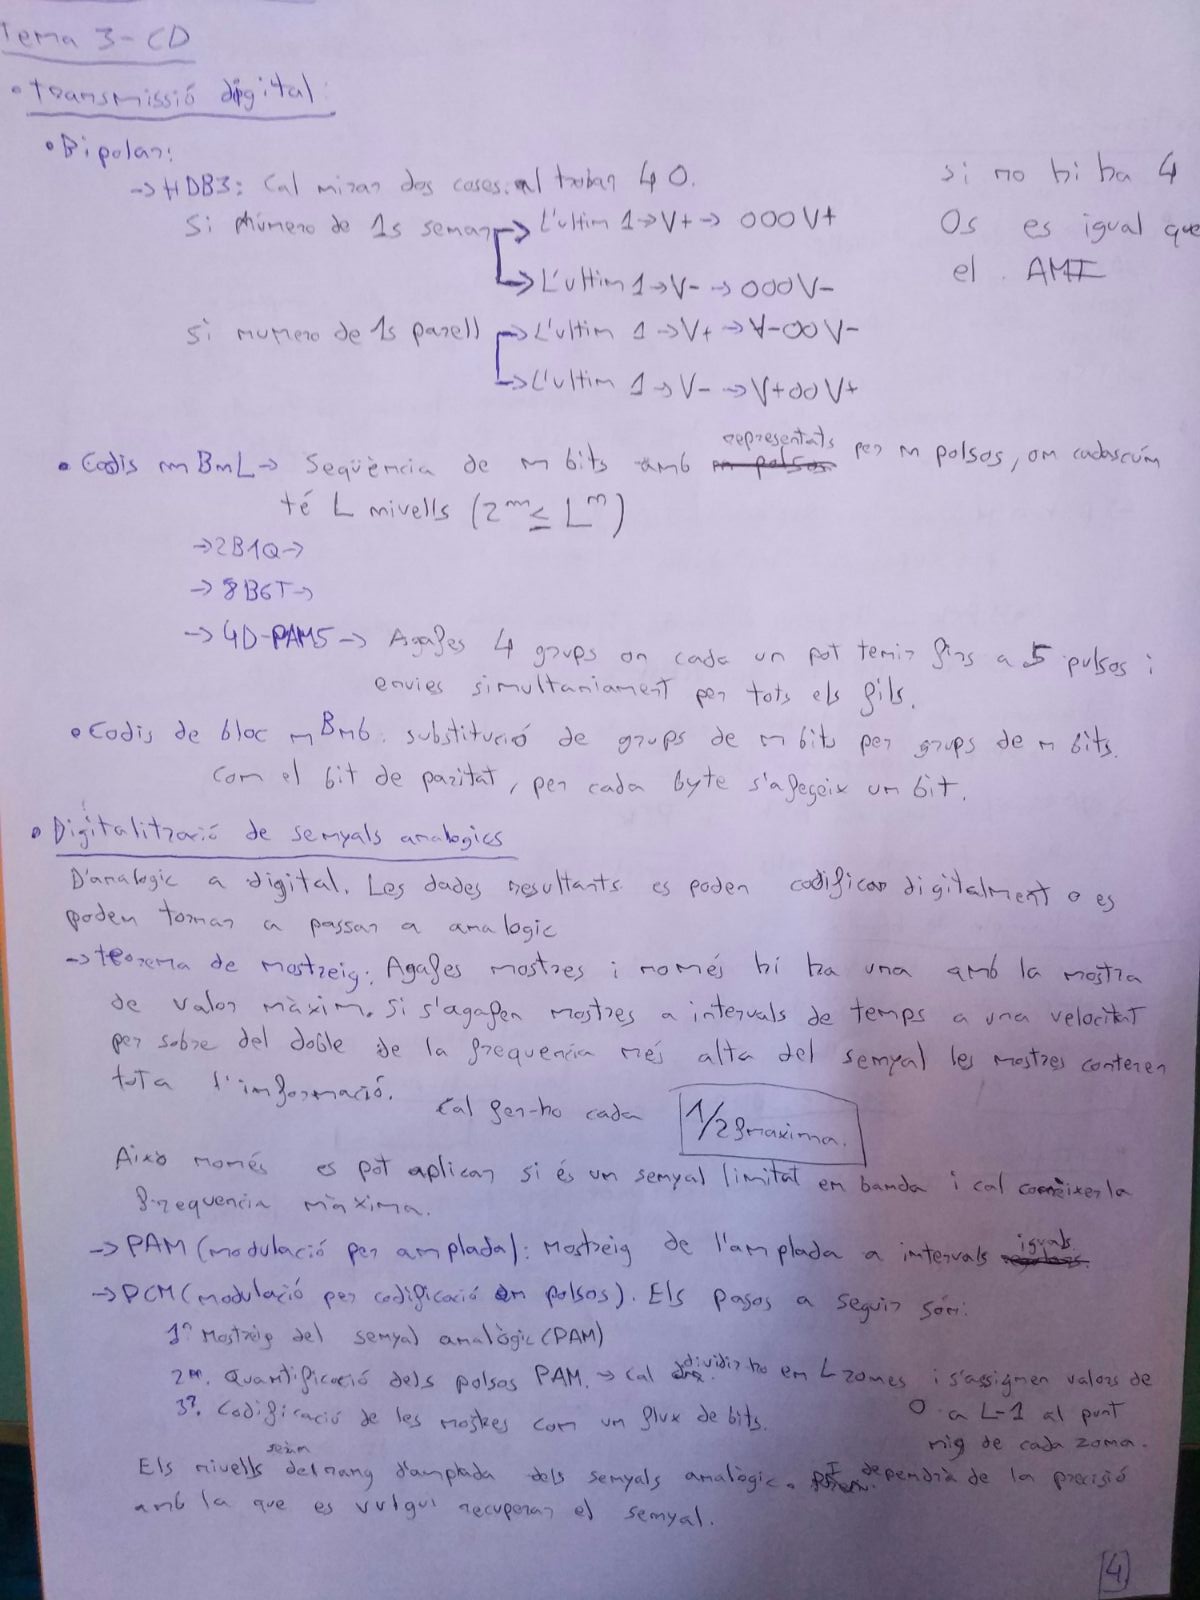 Tema 3 - CD
• Transmissió digital:
• Bipolar:
→ HDB3: Cal mirar dos coses al trobar 4 0.
Si número de 1s senar → L'ultim 1 → V+ → 000V+
→ L'ultim 1 → V- → 000V-
Si numero de 1s parell → L'ultim 1 → V+ → V-00V-
→ L'ultim 1 → V- → V+00V+
si no hi ha 4
0s es igual que
el AMI
• Codis mBnL → Seqüència de m bits representats per n polsos, on cadascún
té L nivells (2^m ≤ L^n)
→ 2B1Q →
→ 8B6T →
→ 4D-PAM5 → Agafes 4 grups on cada un pot tenir fins a 5 pulsos i
envies simultaniament per tots els fils.
• Codis de bloc mBnb: substitució de grups de m bits per grups de n bits.
Com el bit de paritat, per cada byte s'afegeix un bit.
• Digitalització de senyals analogics
D'analogic a digital. Les dades resultants es poden codificar digitalment o es
poden tornar a passar a analogic
→ teorema de mostreig: Agafes mostres i només hi ha una amb la mostra
de valor màxim. Si s'agafen mostres a intervals de temps a una velocitat
per sobre del doble de la frequencia més alta del senyal les mostres contenen
tota l'informació. Cal fer-ho cada 1/2fmaxima.
Això només es pot aplicar si és un senyal limitat en banda i cal conèixer la
frequencia màxima.
→ PAM (modulació per amplada): Mostreig de l'amplada a intervals iguals
→ PCM (modulació per codificació en polsos). Els pasos a seguir són:
1r Mostreig del senyal analògic (PAM)
2n. Quantificació dels polsos PAM. → Cal dividir ho en L zones i s'assignen valors de
0 a L-1 al punt
mig de cada zona.
3r. Codificació de les mostres com un flux de bits.
Els nivells seràn del rang d'amplada dels senyals analògic. I dependrà de la precisió
amb la que es vulgui recuperar el senyal.
4